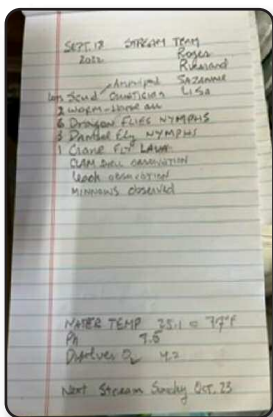 SEPT. 18 STREAM TEAM
2022 Roger
Suzanne
Scud LISA
2 worm-
6 Dragon FLIES NYMPHS
3 Damsel Fly NYMPHS
1 Crane FLY LAVA
CLAM SHELL OBSERVATION
Leach OBSERVATION
MINNOWS observed
WATER TEMP 25.1 = 77°F
Ph 7.5
Disolves O2 4.2
Next Stream Sunday Oct. 23